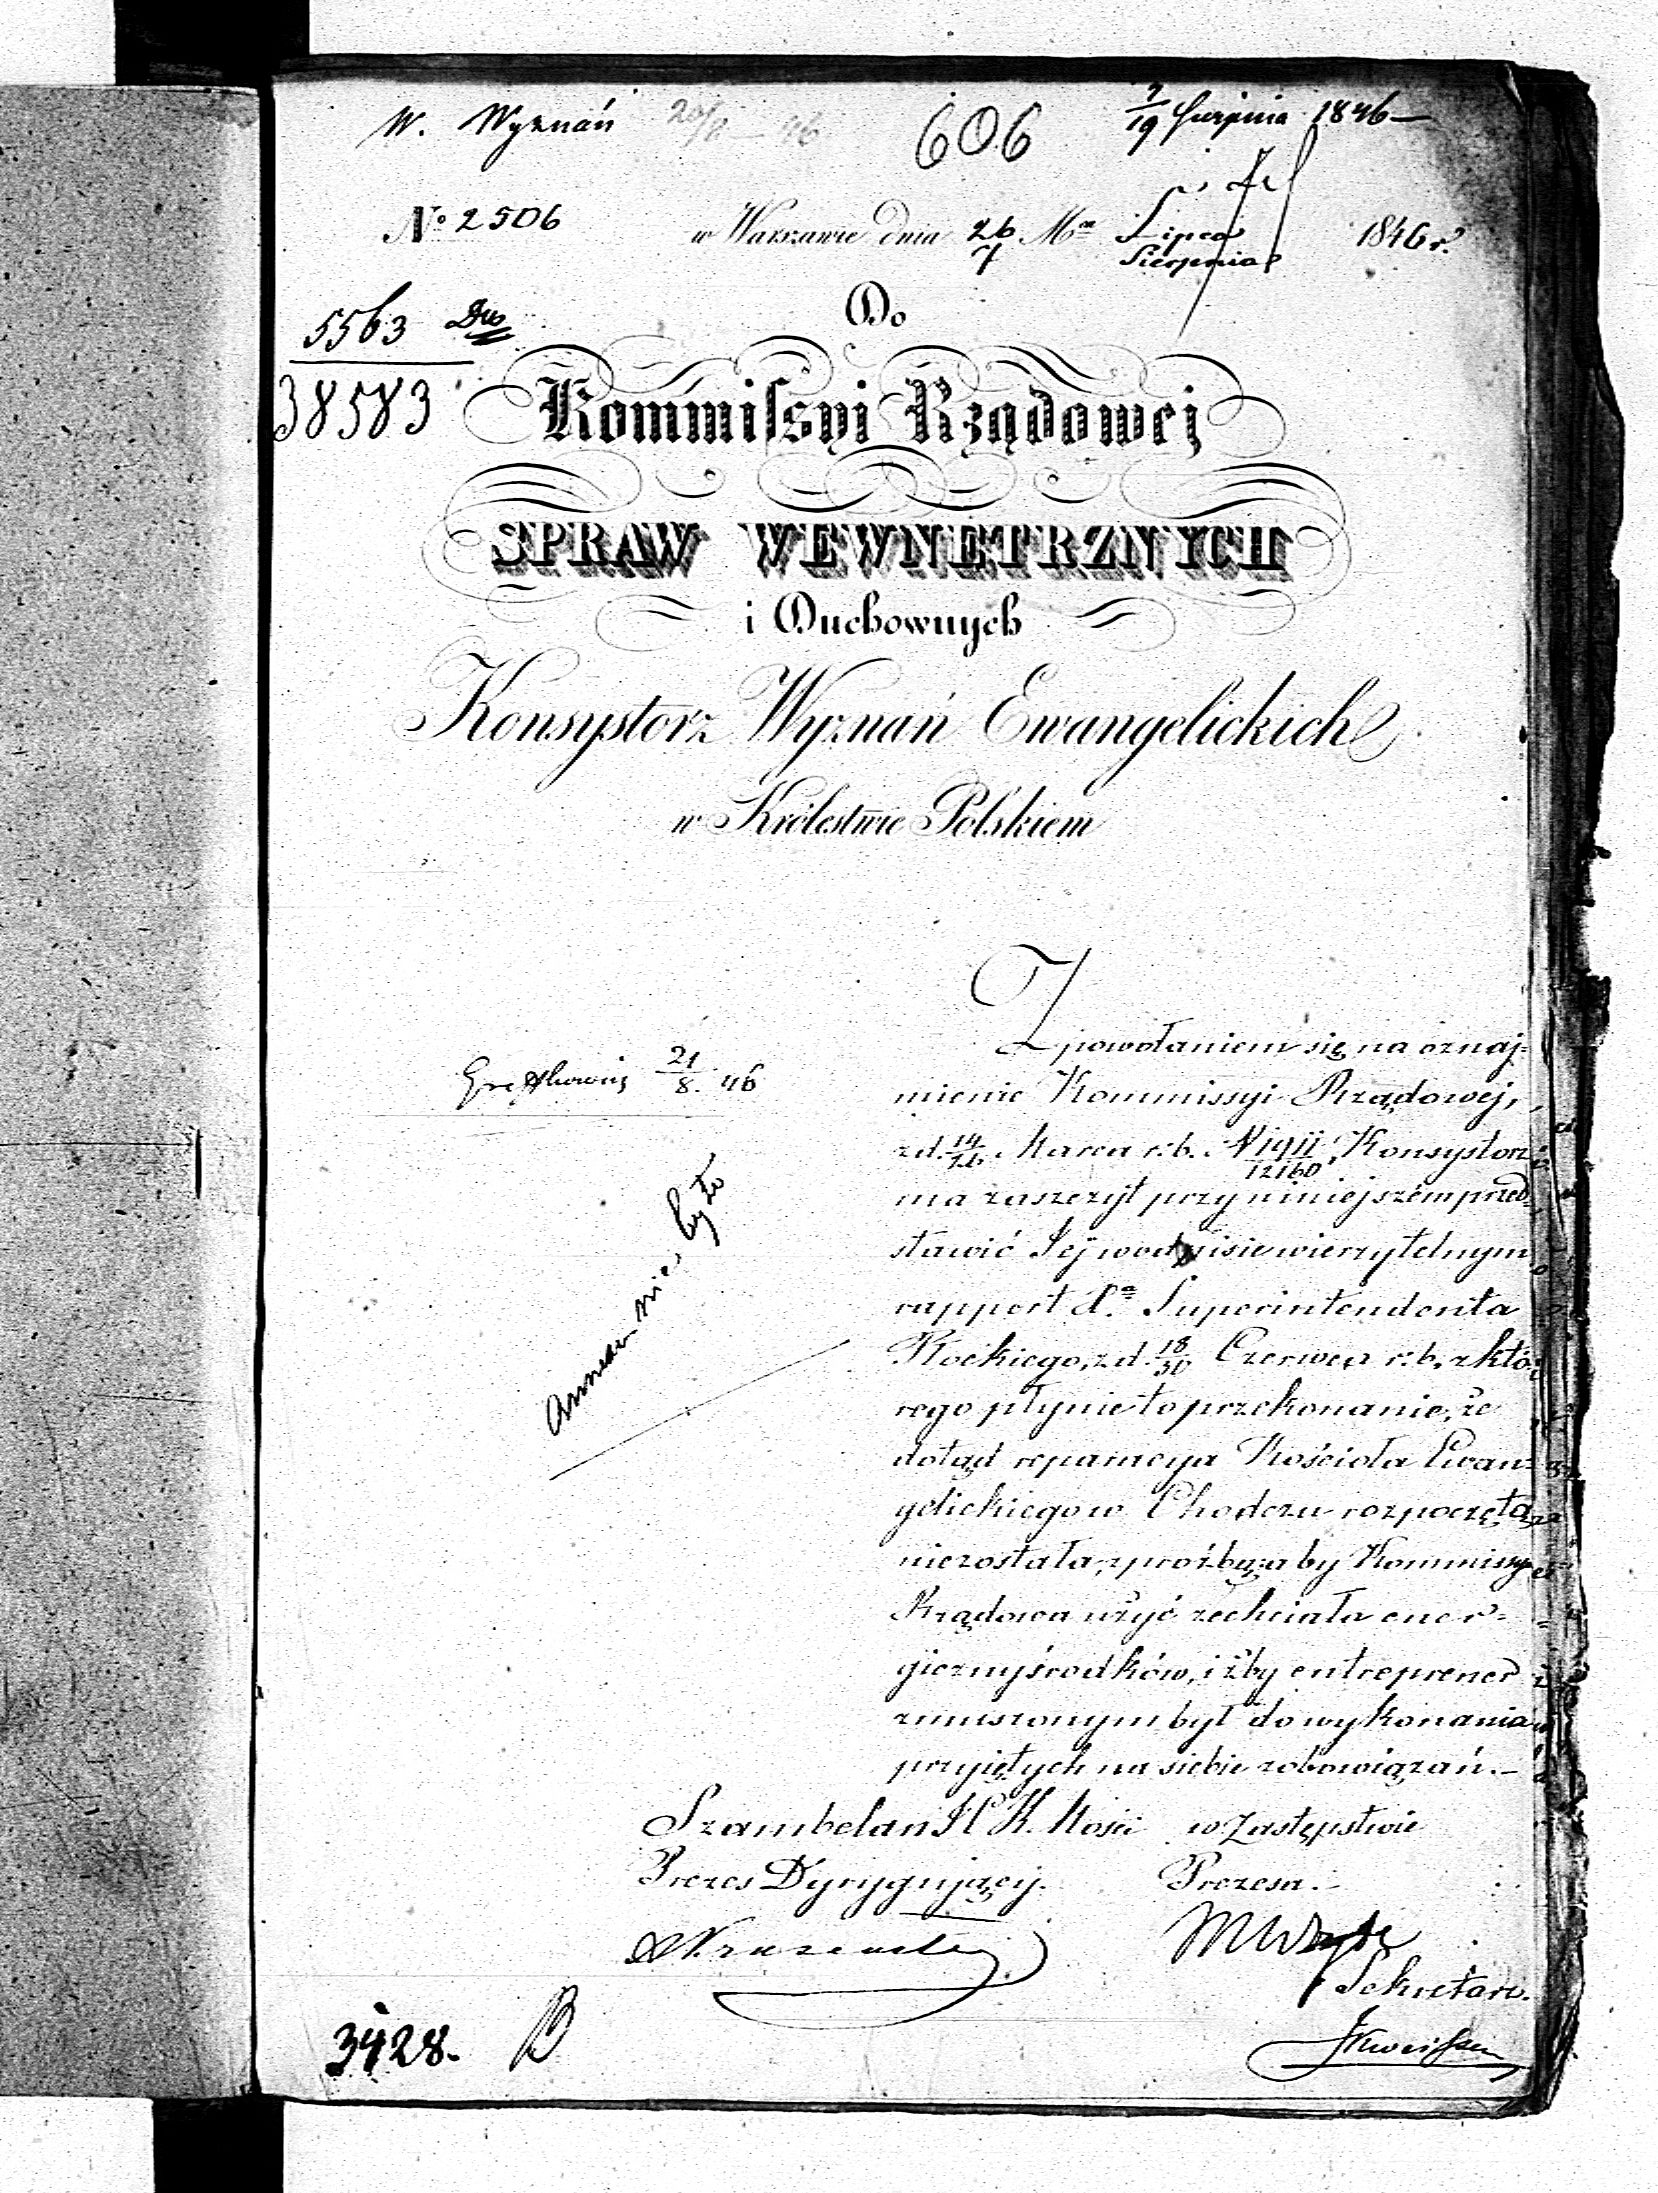 W. Wyznań 20/8 - 46 606 7/19 Sierpnia 1846 —
No 2506 w Warszawie dnia 26/7 Mca Lipca/Sierpnia 1846 r.
5563
38583
Do
Kommissyi Rządowej
SPRAW WEWNĘTRZNYCH
i Duchownych
Konsystorz Wyznań Ewangelickich
w Królestwie Polskiem
Z powołaniem się na oznaj-
21/8. 46
mienie Kommissyi Rządowej,
z d. 14/26 Marca r. b. N 1911/12160, Konsystorz
ma zaszczyt przy niniejszem przed-
stawić Jej w odpisie wierzytelnym
rapport Xa Superintendenta
z d. 18/30 Czerwca r. b. z któ-
rego płynie to przekonanie, że
dotąd reparacya Kościoła Ewan-
gelickiego w Chodczu rozpoczętą
niezostała, z prośbą, aby Kommissya
Rządowa użyć zechciała ener-
giczny środków, iżby entreprener
zmuszonym był do wykonania
przyjętych na siebie zobowiązań. —
Annexu nie było
Szambelan J. C. K. Mości w Zastępstwie
Prezes Dyrygujący. Prezesa. —
Sekretarz.
3428. B